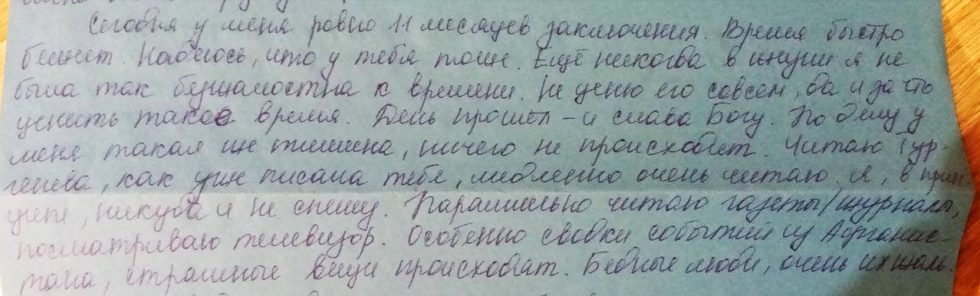 Сегодня у меня ровно 11 месяцев заключения. Время быстро
бежит. Надеюсь, что у тебя тоже. Ещё никогда в жизни я не
была так безжалостна к времени. Не ценю его совсем, да и за что
ценить такое время. День прошёл – и слава Богу. По делу у
меня такая же тишина, ничего не происходит. Читаю Тур-
генева, как уже писала тебе, медленно очень читаю. Я, в прин
ципе, никуда и не спешу. Параллельно читаю газеты/журналы,
посматриваю телевизор. Особенно сводки событий из Афганис-
тана, страшные вещи происходят. Бедные люди, очень их жаль.